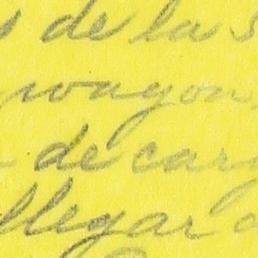 de la
wagon
de carg
llegar